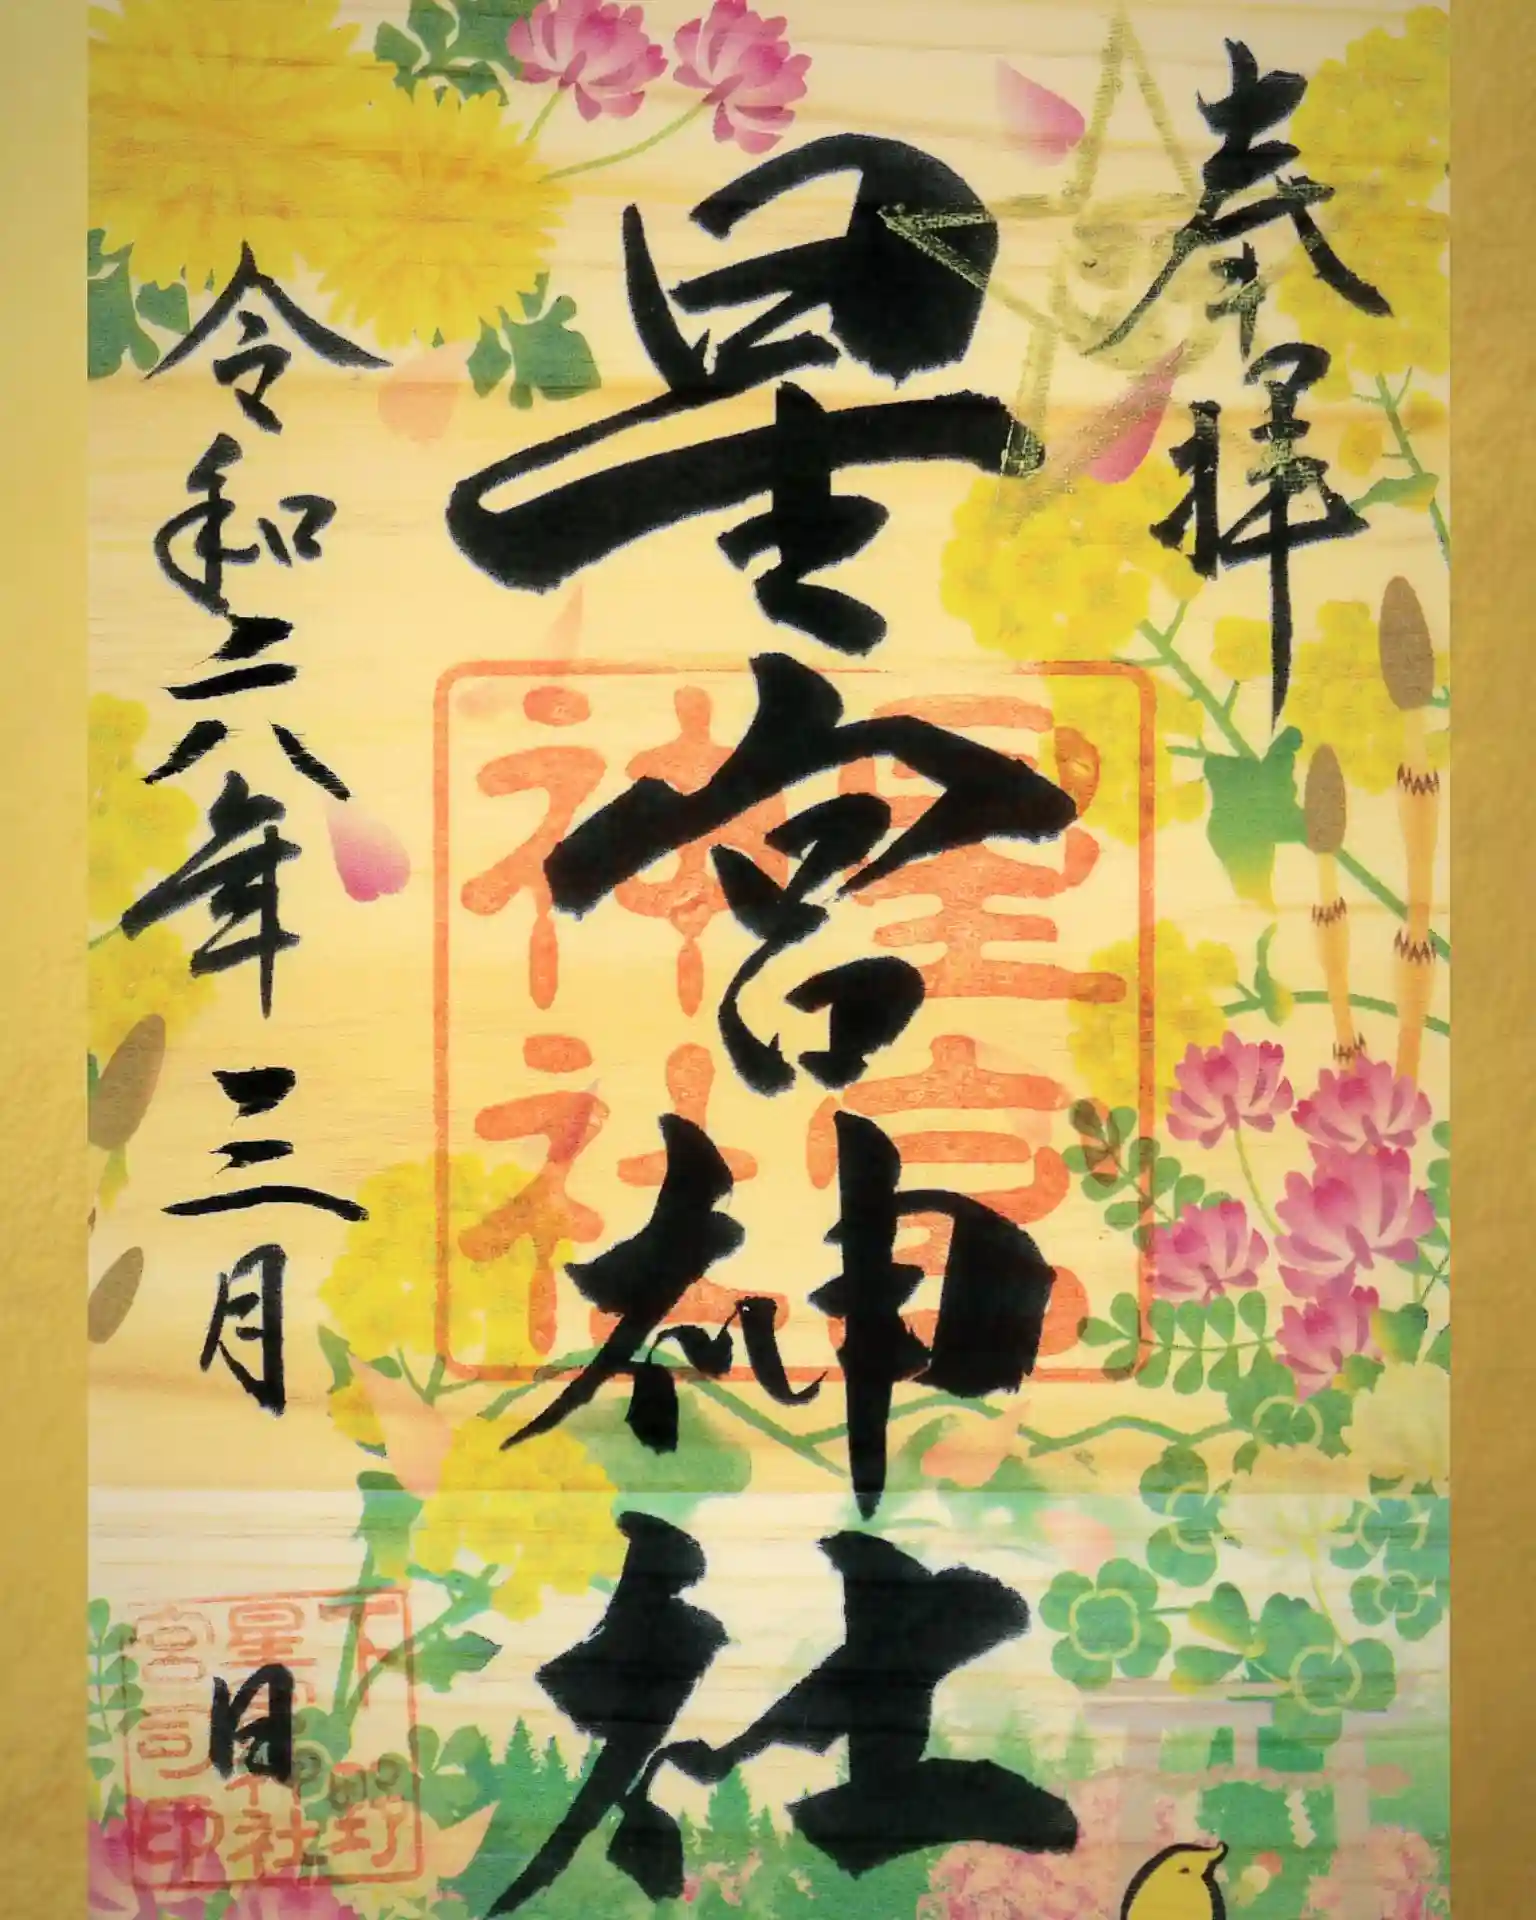 奉拝
星宮神社
令和二八年三月
日
星宮神社
下野
星宮神社
宮司印